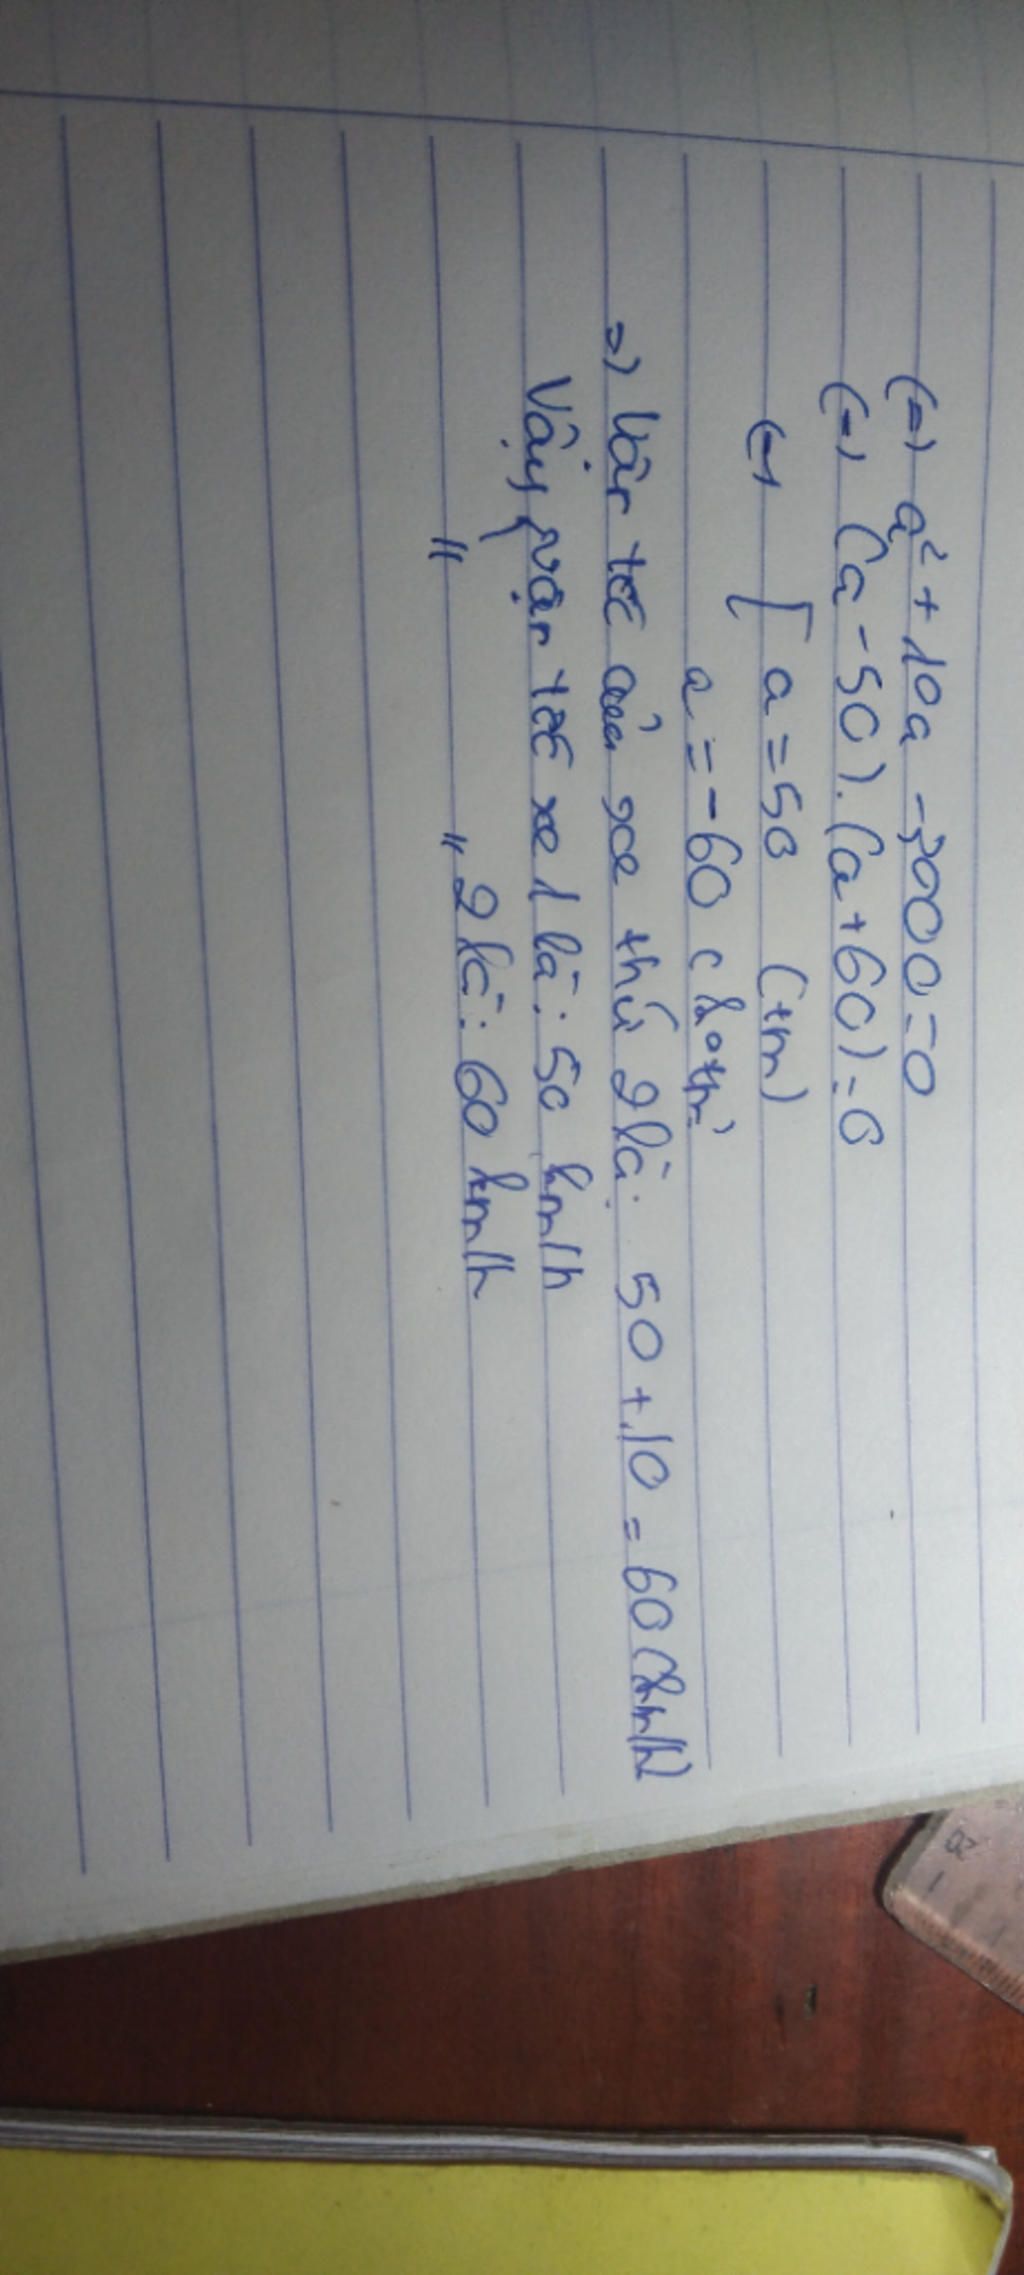 (=) a² + 10a - 3000 = 0
(=) (a - 50).(a + 60) = 0
(=) [ a = 50 (tm)
a = -60 (kotm)
=) Vận tốc của xe thứ 2 là: 50 + 10 = 60 (km/h)
Vậy vận tốc xe 1 là: 50 km/h
" " 2 là: 60 km/h
20